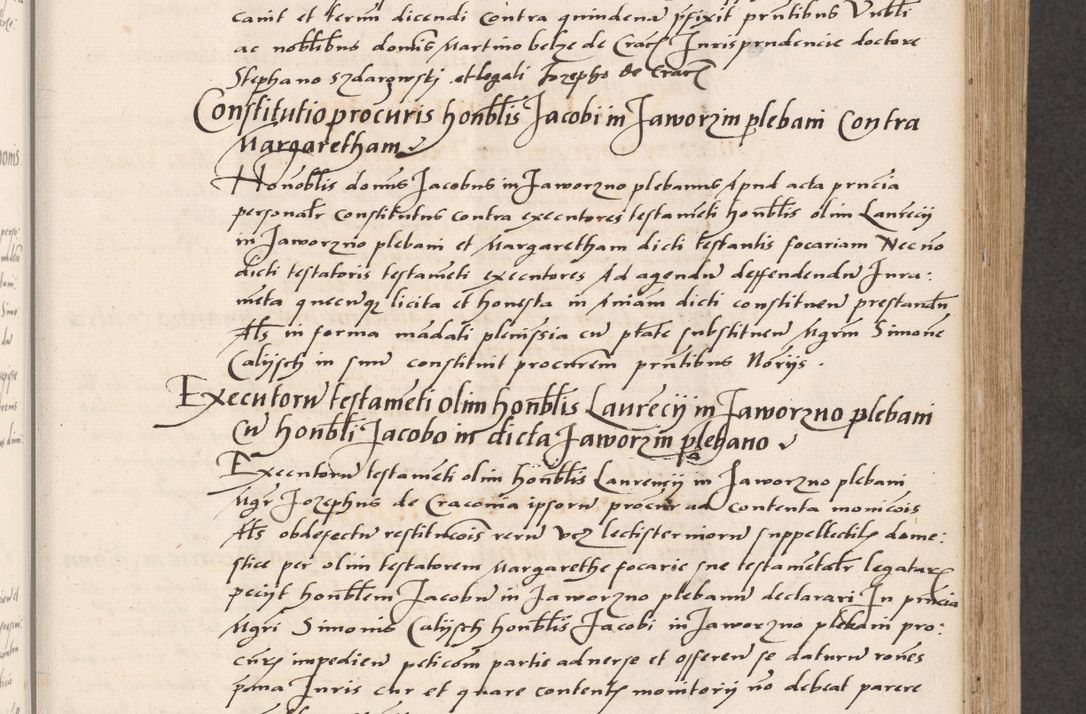 canit et termĩ dicendi contra quindenã p̃fixit pñtibus Vrbli
ac noblibus domĩs Martino belze de Crac̃ Jurisprudencie doctore
Stephano Szdarzowsky et legali Jozepho de Crac̃
Constitutio procuris honblis Jacobi in Jaworzm plebani contra
Margaretham
Honoblis domĩs Jacobus in Jaworzno plebanus Apud acta pñcia
personalr constitutus contra executores testamẽti honblis olim Laurecij
in Jaworzno plebani et Margaretham dicti testantis focariam Necno
dicti testatoris testamẽti executores Ad agendũ deffendendũ Jura:
meta quecũqȝ licita et honesta in Aniam dicti constituen prestandũ
Als in forma mãdati plenissia cũ ptate substituen Mgrm Simone
Calijsch in suũ constituit procurem pñtibus Norijs .
Executorũ testamẽti olim honblis Laurecij in Jaworzno plebani
Cũ honbli Jacobo in dicta Jaworzm plebano
Executorũ testamẽti olim honblis Laurencij in Jaworzno plebani
Mgr Jozephus de Craconia ipsorũ procur ad contenta monicois
Als ob defectũ restitucois rerũ vcz lectisterniorũ suppellectilẽ dome:
stice per olim testatorem Margarethe focarie sue testamẽtalr legatarȝ
pecijt honblem Jacobũ in Jaworzno plebanũ declarari In pñcia
Mgri Simonis Calijsch honblis Jacobi in Jaworzno plebani pro:
curis impedien peticom partis aduerse et offeren se daturũ rones
pma Juris cur et quare contentȝ monitorij nõ debeat parere